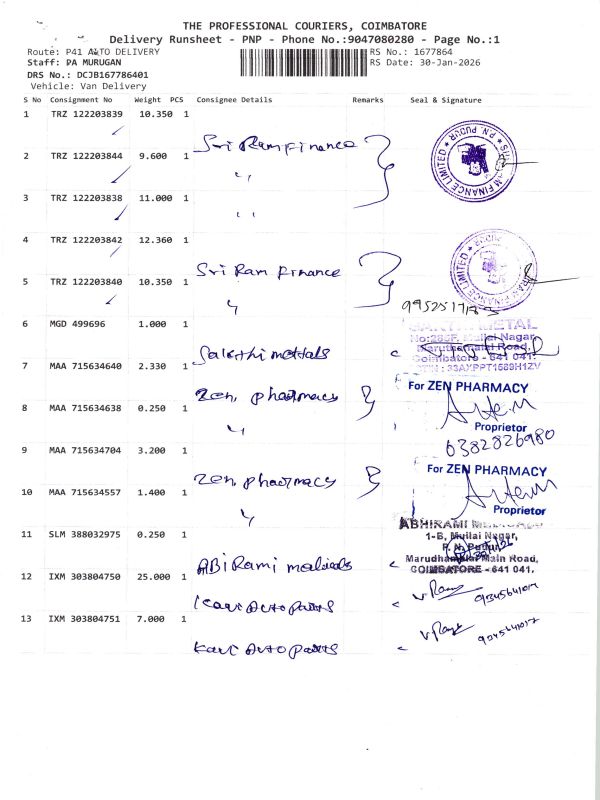 THE PROFESSIONAL COURIERS, COIMBATORE
Delivery Runsheet - PNP - Phone No.:9047080280 - Page No.:1
Route: P41 AUTO DELIVERY
RS No.: 1677864
Staff: PA MURUGAN
RS Date: 30-Jan-2026
DRS No.: DCJB167786401
Vehicle: Van Delivery
S No Consignment No Weight PCS Consignee Details Remarks Seal & Signature
1 TRZ 122203839 10.350 1
Sri Ram Finance
2 TRZ 122203844 9.600 1
〃
3 TRZ 122203838 11.000 1
〃
4 TRZ 122203842 12.360 1
Sri Ram Finance
5 TRZ 122203840 10.350 1
〃
6 MGD 499696 1.000 1
Sakthi mettals
7 MAA 715634640 2.330 1
Zen pharmacy
For ZEN PHARMACY
8 MAA 715634638 0.250 1
〃
Proprietor
6382826980
9 MAA 715634704 3.200 1
Zen pharmacy
For ZEN PHARMACY
10 MAA 715634557 1.400 1
〃
Proprietor
ABHIRAMI
11 SLM 388032975 0.250 1
1-B, Mullai Nagar,
ABiRami medicals
Marudhamalai Main Road,
COIMBATORE - 641 041.
12 IXM 303804750 25.000 1
Kavi Auto parts
13 IXM 303804751 7.000 1
Kavi Auto parts